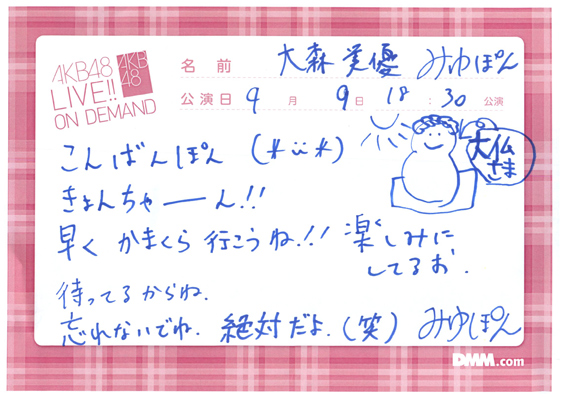 AKB48
LIVE!!
ON DEMAND
AKB
48
名前 大森美優 みゆぽん
公演日 9月 9日 18:30 公演
こんばんぽん (*¨*)
きょんちゃーん!!
大仏
さま
早く かまくら 行こうね!! 楽しみに
してるお.
待ってるからね.
忘れないでね. 絶対だよ.(笑) みゆぽん
DMM.com